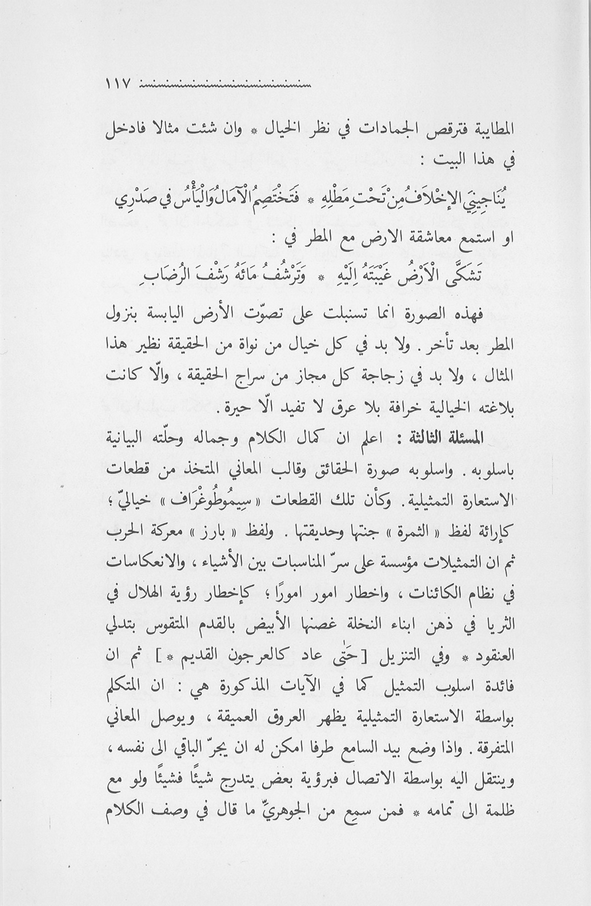 ١١٧
المطايبة فترقص الجمادات في نظر الخيال * وان شئت مثالا فادخل
في هذا البيت :
يُنَاجِينِيَ الاِخْلَافُ مِنْ تَحْتِ مَطْلِهِ * فَتَخْتَصِمُ الْآمَالُ وَالْيَأْسُ فِي صَدْرِي
او استمع معاشقة الارض مع المطر في :
تَشَكَّى الْاَرْضُ غَيْبَتَهُ اِلَيْهِ * وَتَرْشُفُ مَائَهُ رَشْفَ الرُضَابِ
فهذه الصورة انما تسنبلت على تصوّت الأرض اليابسة بنزول
المطر بعد تأخر . ولا بد في كل خيال من نواة من الحقيقة نظير هذا
المثال ، ولا بد في زجاجة كل مجاز من سراج الحقيقة ، والّا كانت
بلاغته الخيالية خرافة بلا عرق لا تفيد الّا حيرة .
المسئلة الثالثة : اعلم ان كمال الكلام وجماله وحلّته البيانية
باسلوبه . واسلوبه صورة الحقائق وقالب المعاني المتخذ من قطعات
الاستعارة التمثيلية . وكأن تلك القطعات « سِيمُوطُوغْرَاف » خياليّ ؛
كإرائة لفظ « الثمرة » جنتها وحديقتها . ولفظ « بارز » معركة الحرب
ثم ان التمثيلات مؤسسة على سرّ المناسبات بين الأشياء ، والانعكاسات
في نظام الكائنات ، واخطار امور امورًا ؛ كإخطار رؤية الهلال في
الثريا في ذهن ابناء النخلة غصنها الأبيض بالقدم المتقوس بتدلي
العنقود * وفي التنزيل [حَتّٰى عاد كالعرجون القديم *] ثم ان
فائدة اسلوب التمثيل كما في الآيات المذكورة هي : ان المتكلم
بواسطة الاستعارة التمثيلية يظهر العروق العميقة ، ويوصل المعاني
المتفرقة . واذا وضع بيد السامع طرفا امكن له ان يجرّ الباقي الى نفسه ،
وينتقل اليه بواسطة الاتصال فبرؤية بعض يتدرج شيئًا فشيئًا ولو مع
ظلمة الى تمامه * فمن سمِع من الجوهريِّ ما قال في وصف الكلام